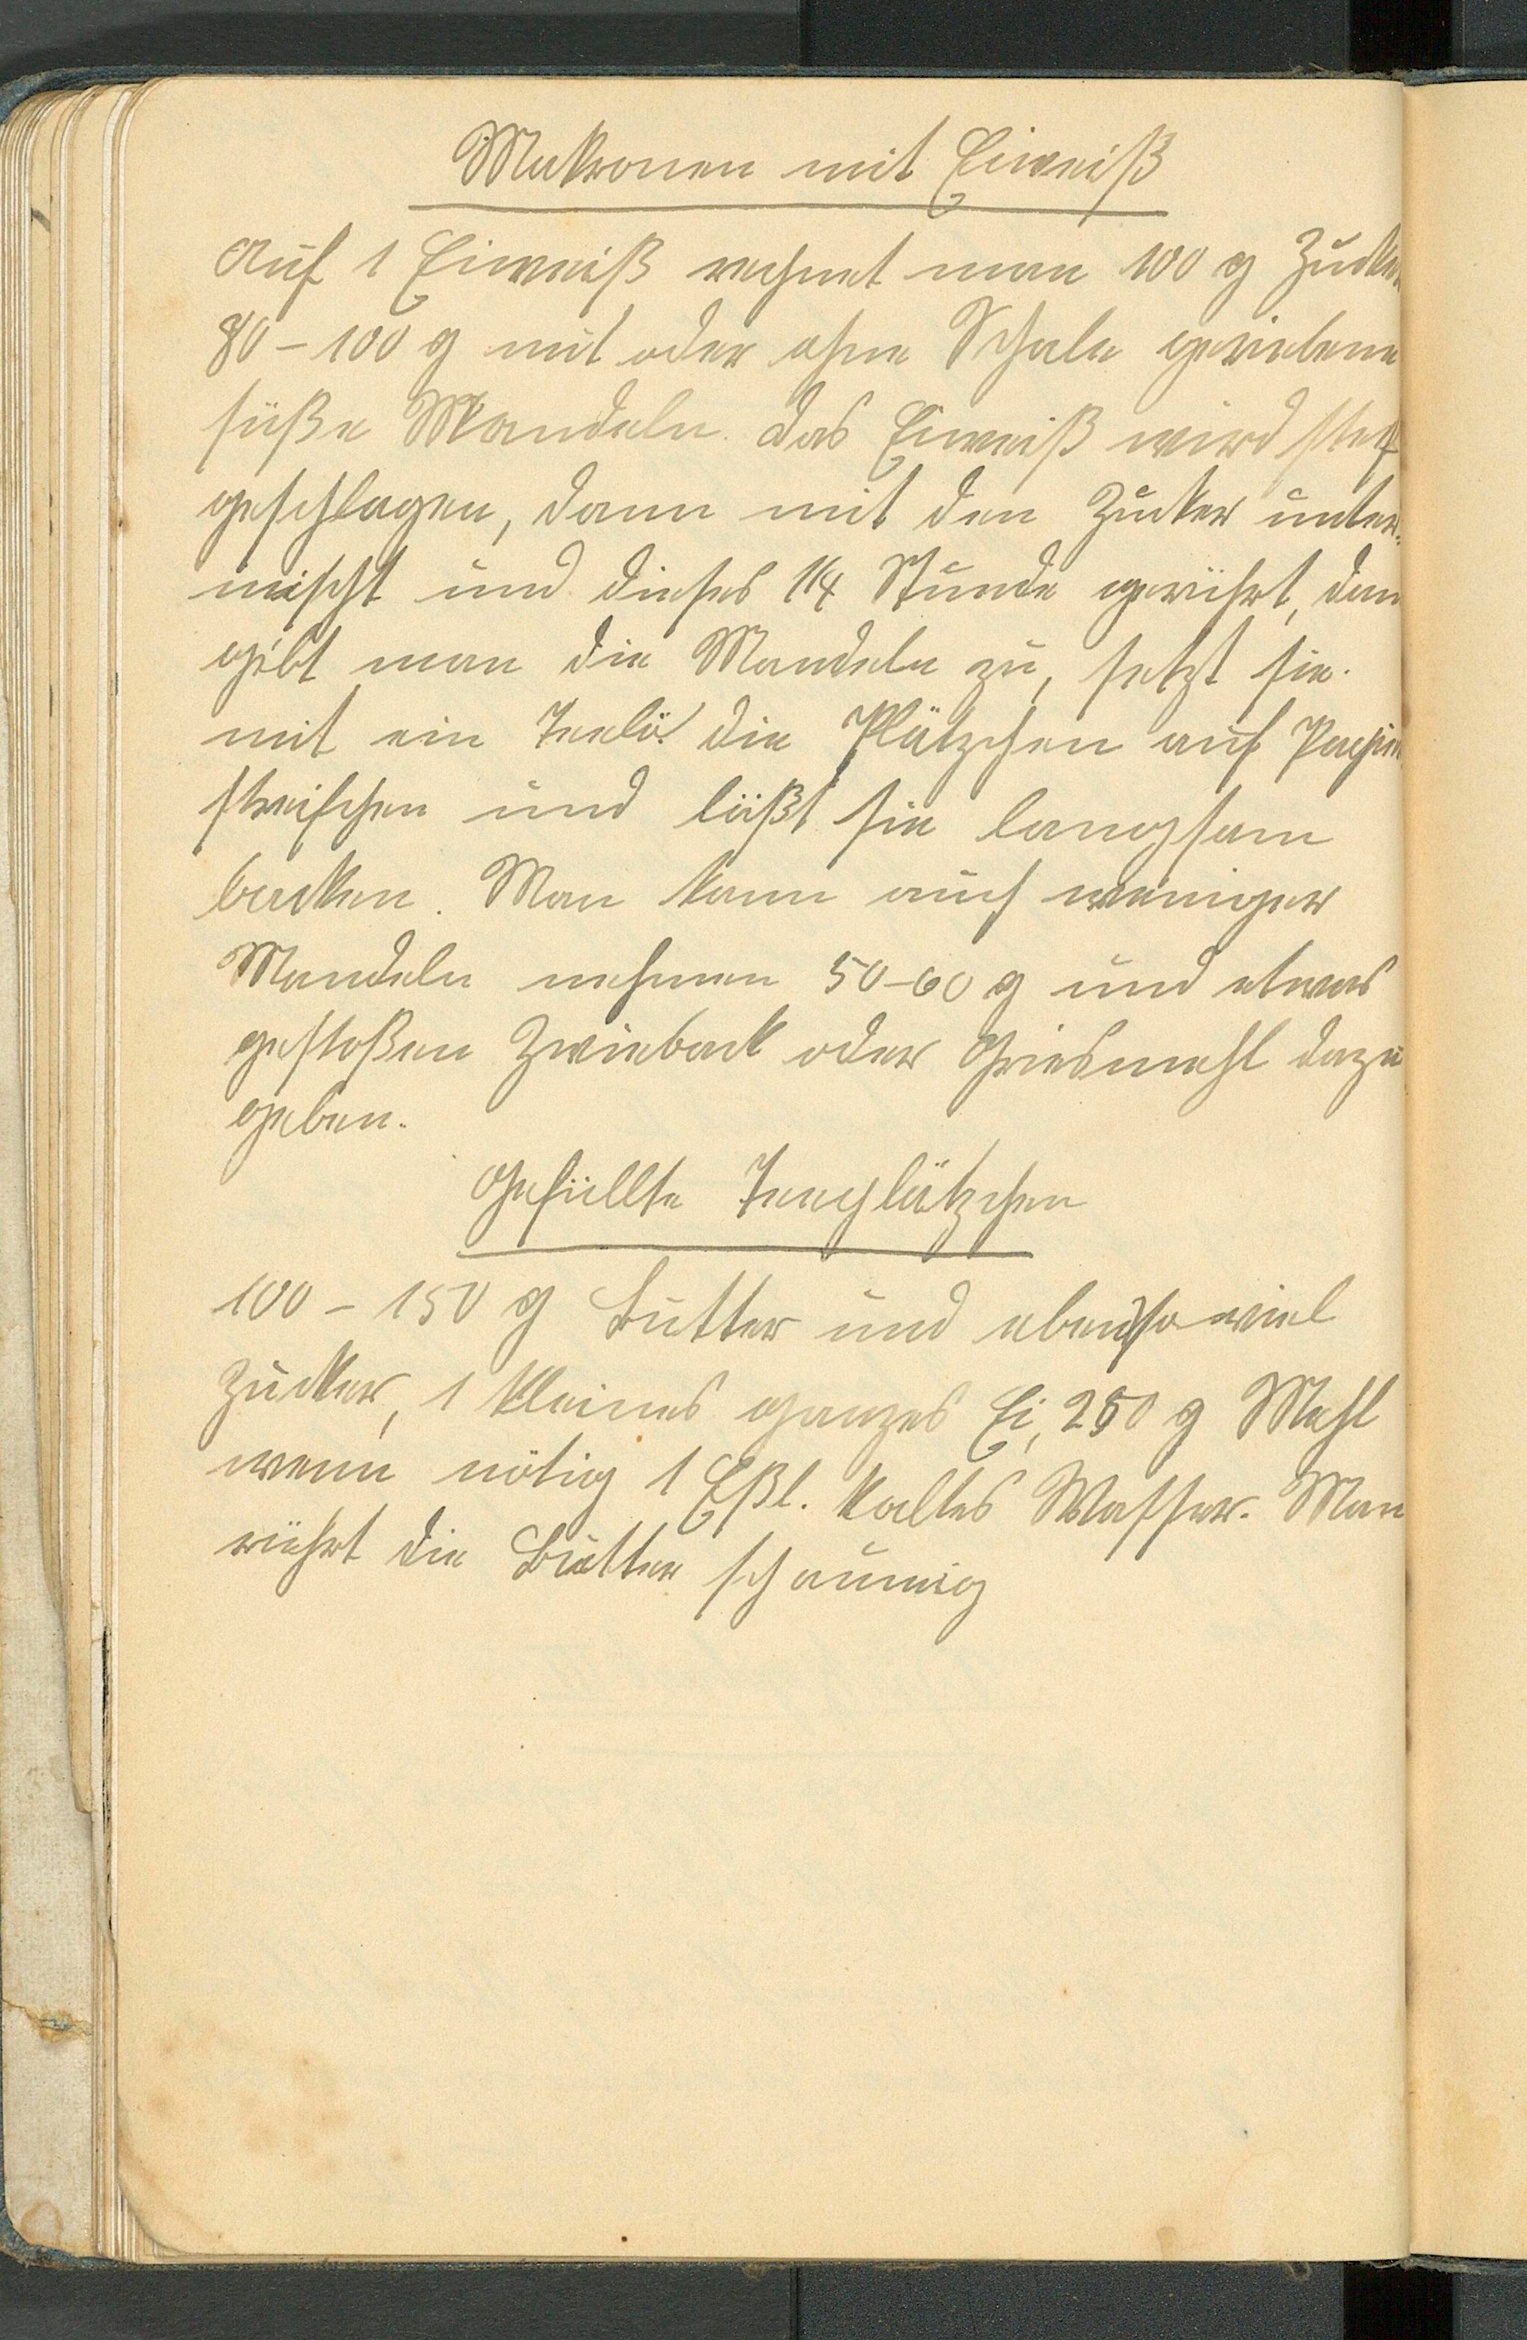 Makronen mit Eiweiß
Auf 1 Eiweiß rechnet man 100 g Zucker
80 – 100 g mit oder ohne Schale geriebene
süße Mandeln. Das Eiweiß wird steif
geschlagen, dann mit den Zucker unter-
mischt und dieses 1/4 Stunde gerührt, dan
gibt man die Mandeln zu, setzt sie.
mit ein Teelö. die Plätzchen auf Papier
streifchen und läßt sie langsam
backen. Man kann auch weniger
Mandeln nehmen 50–60 g und etwas
gestoßen Zwieback oder Griesmehl dazu
geben.
Gefüllte Teeplätzchen
100 – 150 g Butter und ebensoviel
Zucker, 1 kleines ganzes Ei, 250 g Mehl
wenn nötig 1 Eßl. kaltes Wasser. Man
rührt die Butter schaumig